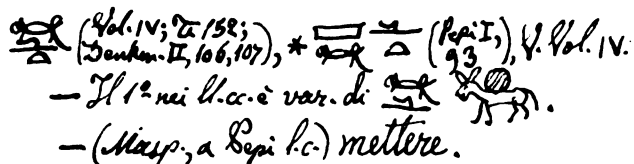 (Vol. IV; T. 152;
Denkm. II, 106, 107), * (Pepi I, 93), V. Vol. IV.
— Il 1º nei ll. cc. è var. di .
— (Masp., a Pepi l. c.) mettere.